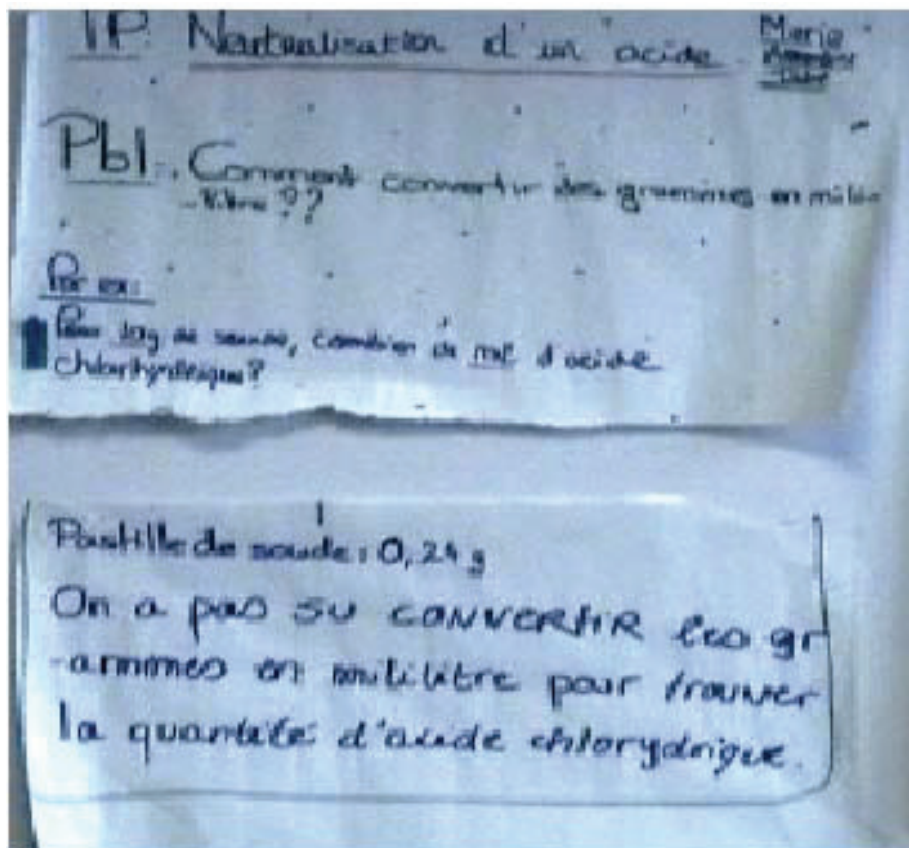 TP Neutralisation d'un acide Marie
Pb1. Comment convertir des grammes en mili-
-litre ??
Par ex:
Pour 10g de soude, combien de ml d'acide
chlorhydrique?
Pastille de soude : 0,24 g
On a pas su CONVERTIR les gr
-ammes en mililitre pour trouver
la quantité d'acide chlorydrique.